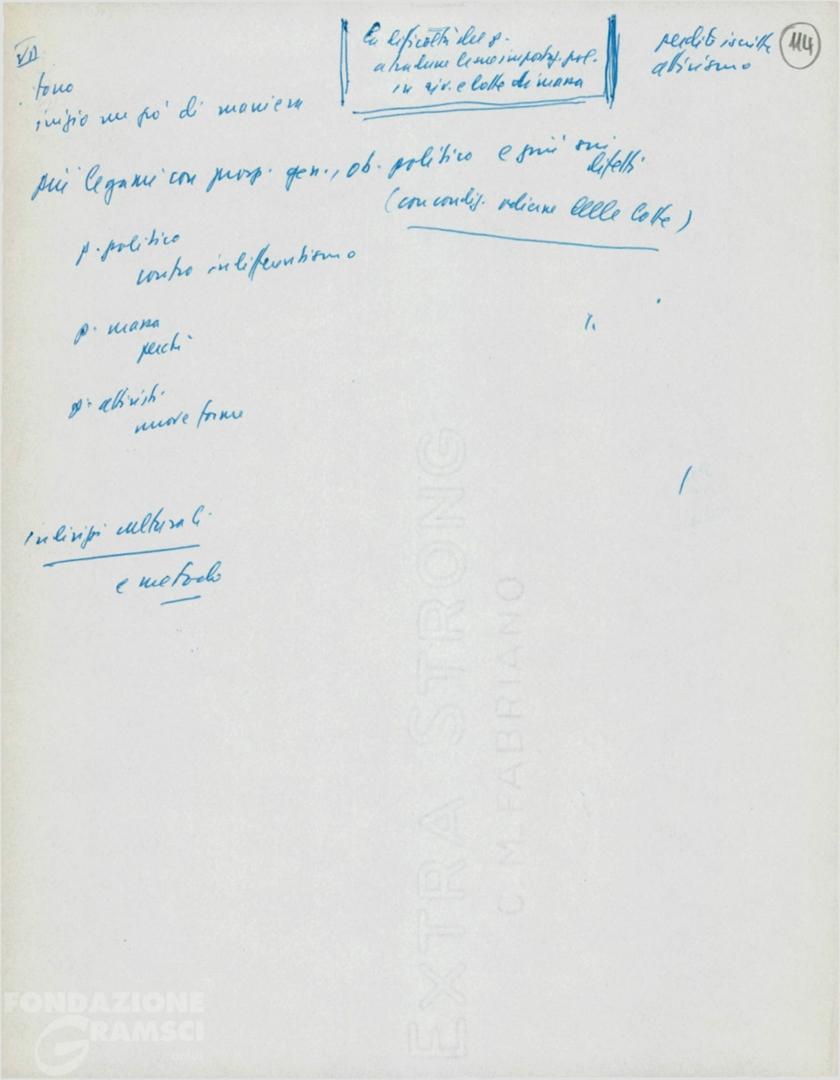 VII
tono
inizio un po' di maniera
la difficoltà del p.
a tradurre le sue impostaz. pol.
in niz. e lotte di massa
perdite iscritti
attivismo
114
più legami con prosp. gen., ob. politico e più sui
difetti
(con condiz. odierne delle lotte)
p. politico
contro indifferentismo
p. massa
perché
p. attivisti
nuove forme
indirizzi culturali
e metodo
EXTRA STRONG
C.M.FABRIANO
FONDAZIONE
GRAMSCI
onlus